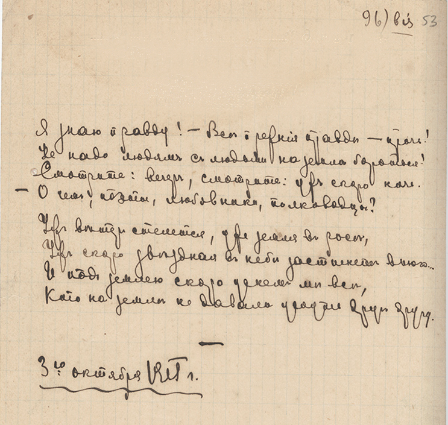 96) 53
Я знаю правду! — Всѣ прежнія правды — прочь!
Не надо людямъ съ людьми на землѣ бороться!
Смотрите: вечеръ, смотрите: ужъ скоро ночь.
— О чемъ, поэты, любовники, полководцы?
Ужъ вѣтеръ стелется, уже земля въ росѣ,
Ужъ скоро звѣздная въ небѣ застынетъ вьюга,
И подъ землею скоро уснемъ мы всѣ,
Кто на землѣ не давали уснуть другъ другу.
—
3го октября 1915 г.